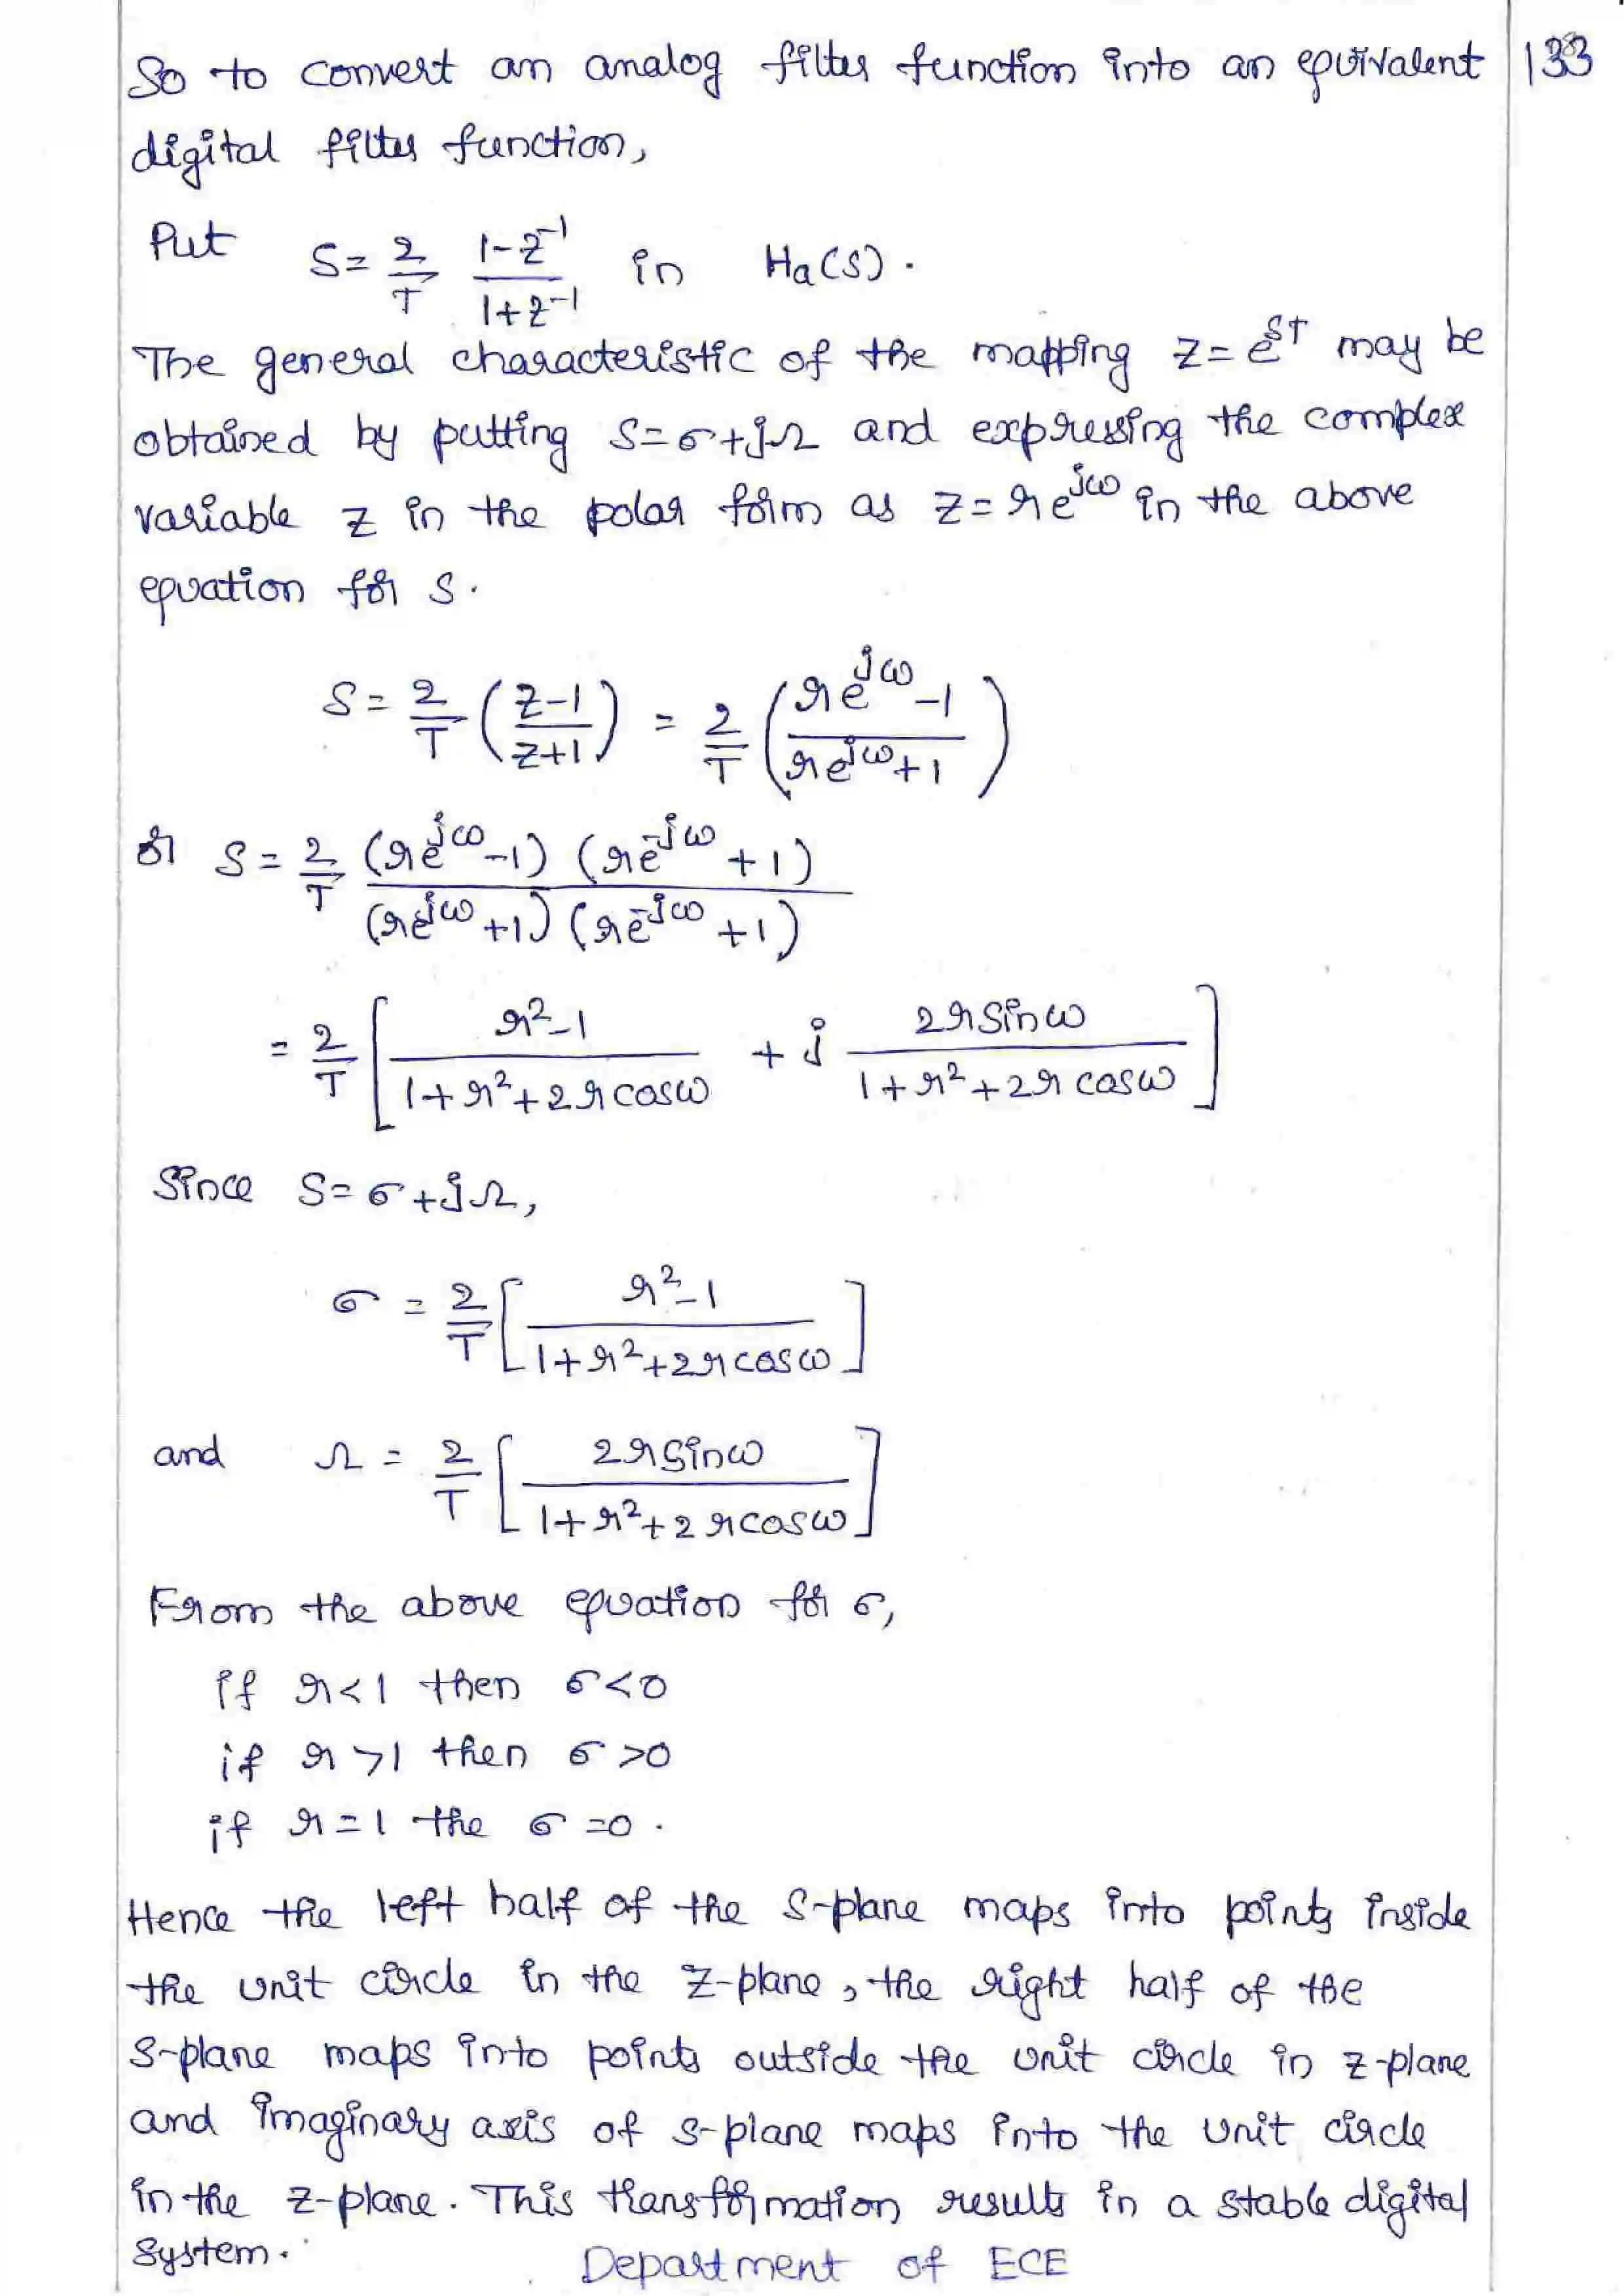 So to convert an analog filter function into an equivalent 133
digital filter function,
Put S = 2/T (1-z^-1)/(1+z^-1) in Ha(s).
The general characteristic of the mapping z = e^ST may be
obtained by putting S=σ+jΩ and expressing the complex
variable z in the polar form as z = re^jω in the above
equation for s.
S = 2/T ((z-1)/(z+1)) = 2/T ((re^jω -1)/(re^jω +1))
or S = 2/T ((re^jω -1) (re^-jω +1))/((re^jω +1) (re^-jω +1))
= 2/T [(r²-1)/(1+r²+2r cosω) + j (2r sinω)/(1+r²+2r cosω)]
Since S = σ+jΩ,
σ = 2/T [(r²-1)/(1+r²+2r cosω)]
and Ω = 2/T [(2r sinω)/(1+r²+2r cosω)]
From the above equation for σ,
if r<1 then σ<0
if r>1 then σ>0
if r=1 the σ=0.
Hence the left half of the S-plane maps into points inside
the unit circle in the Z-plane, the right half of the
S-plane maps into points outside the unit circle in z-plane
and imaginary axis of s-plane maps into the unit circle
in the z-plane. This transformation results in a stable digital
system.
Department of ECE